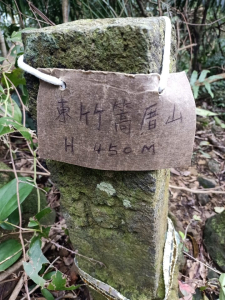 東竹篙厝山
H 450M